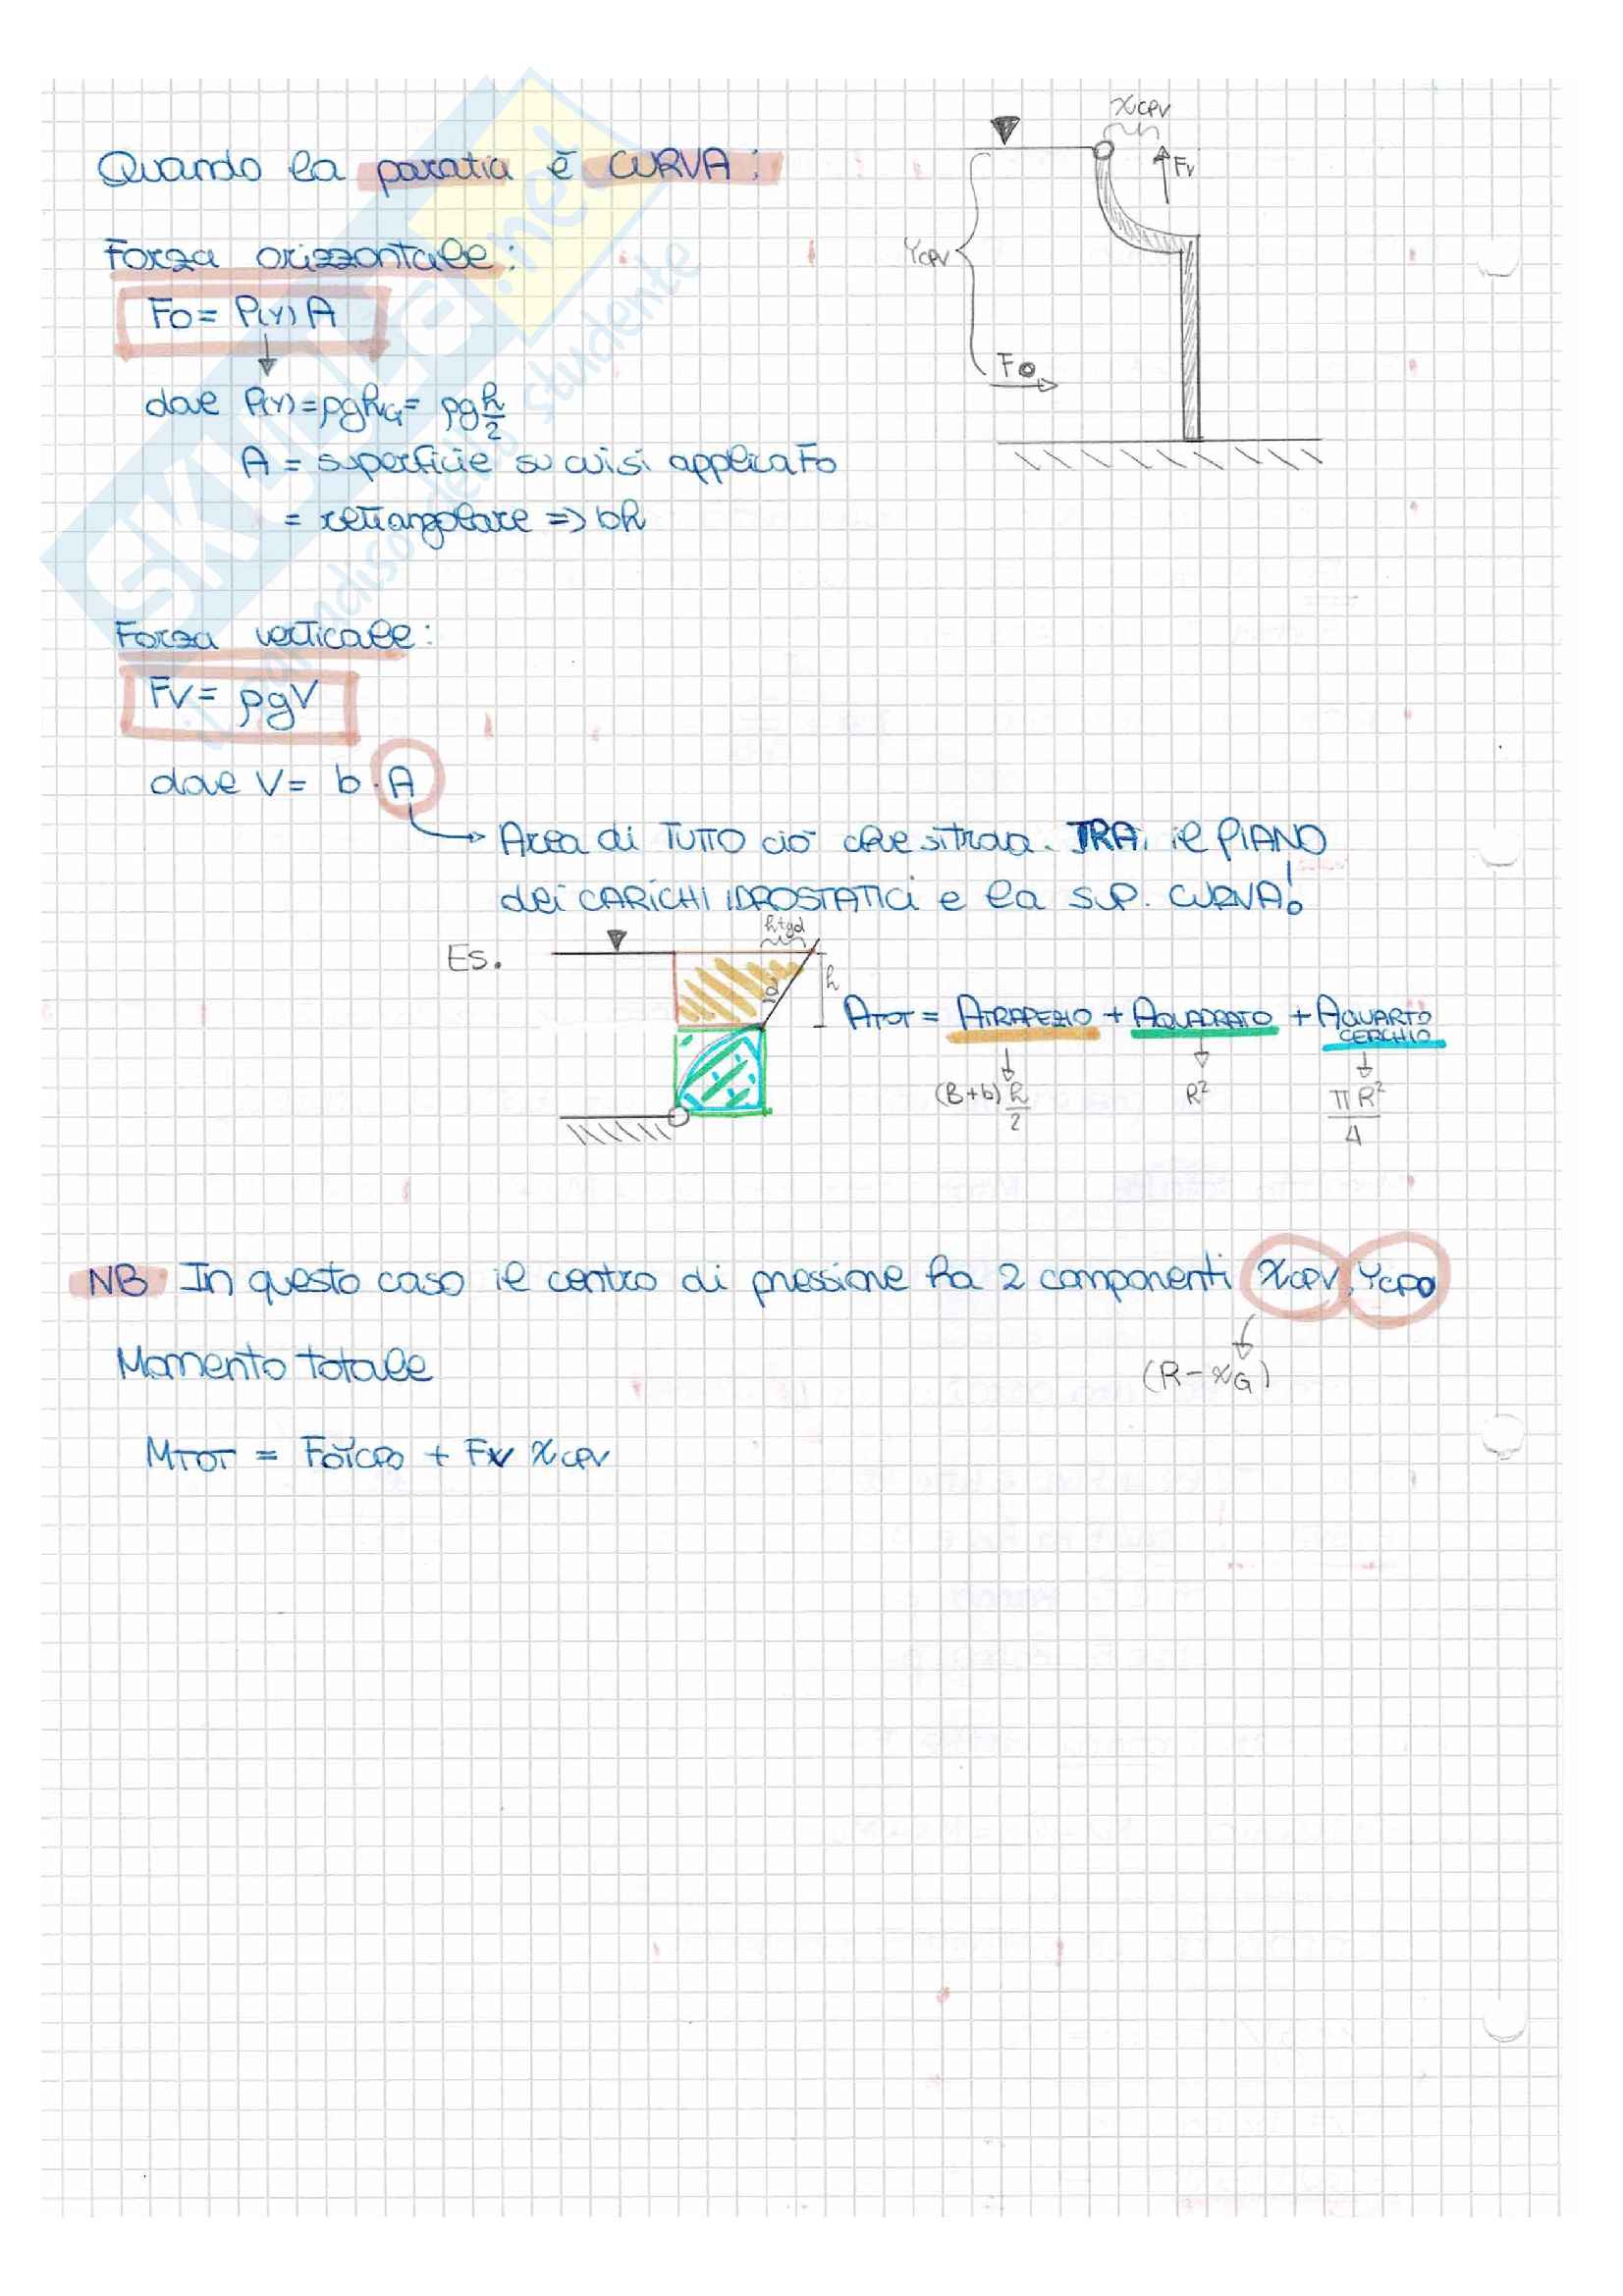 Quando la paratia è CURVA:
Forza orizzontale:
Fo = P(Y) A
dove P(Y) = ρghG = ρg h/2
A = superficie su cui si applica Fo
= rettangolare => bh
XCPV
FV
YCPV
Fo
Forza verticale:
FV = ρgV
dove V = b · A
Area di TUTTO ciò che si trova TRA il PIANO
dei CARICHI IDROSTATICI e la SUP. CURVA!
Es.
htgα
α
h
ATOT = ATRAPEZIO + AQUADRATO + AQUARTO CERCHIO
(B+b) h/2
R²
πR²/4
NB In questo caso il centro di pressione ha 2 componenti XCPV, YCPO
(R - XG)
Momento totale
MTOT = Fo YCPO + FV XCPV
SKUOLA.net
il paradiso dello studente